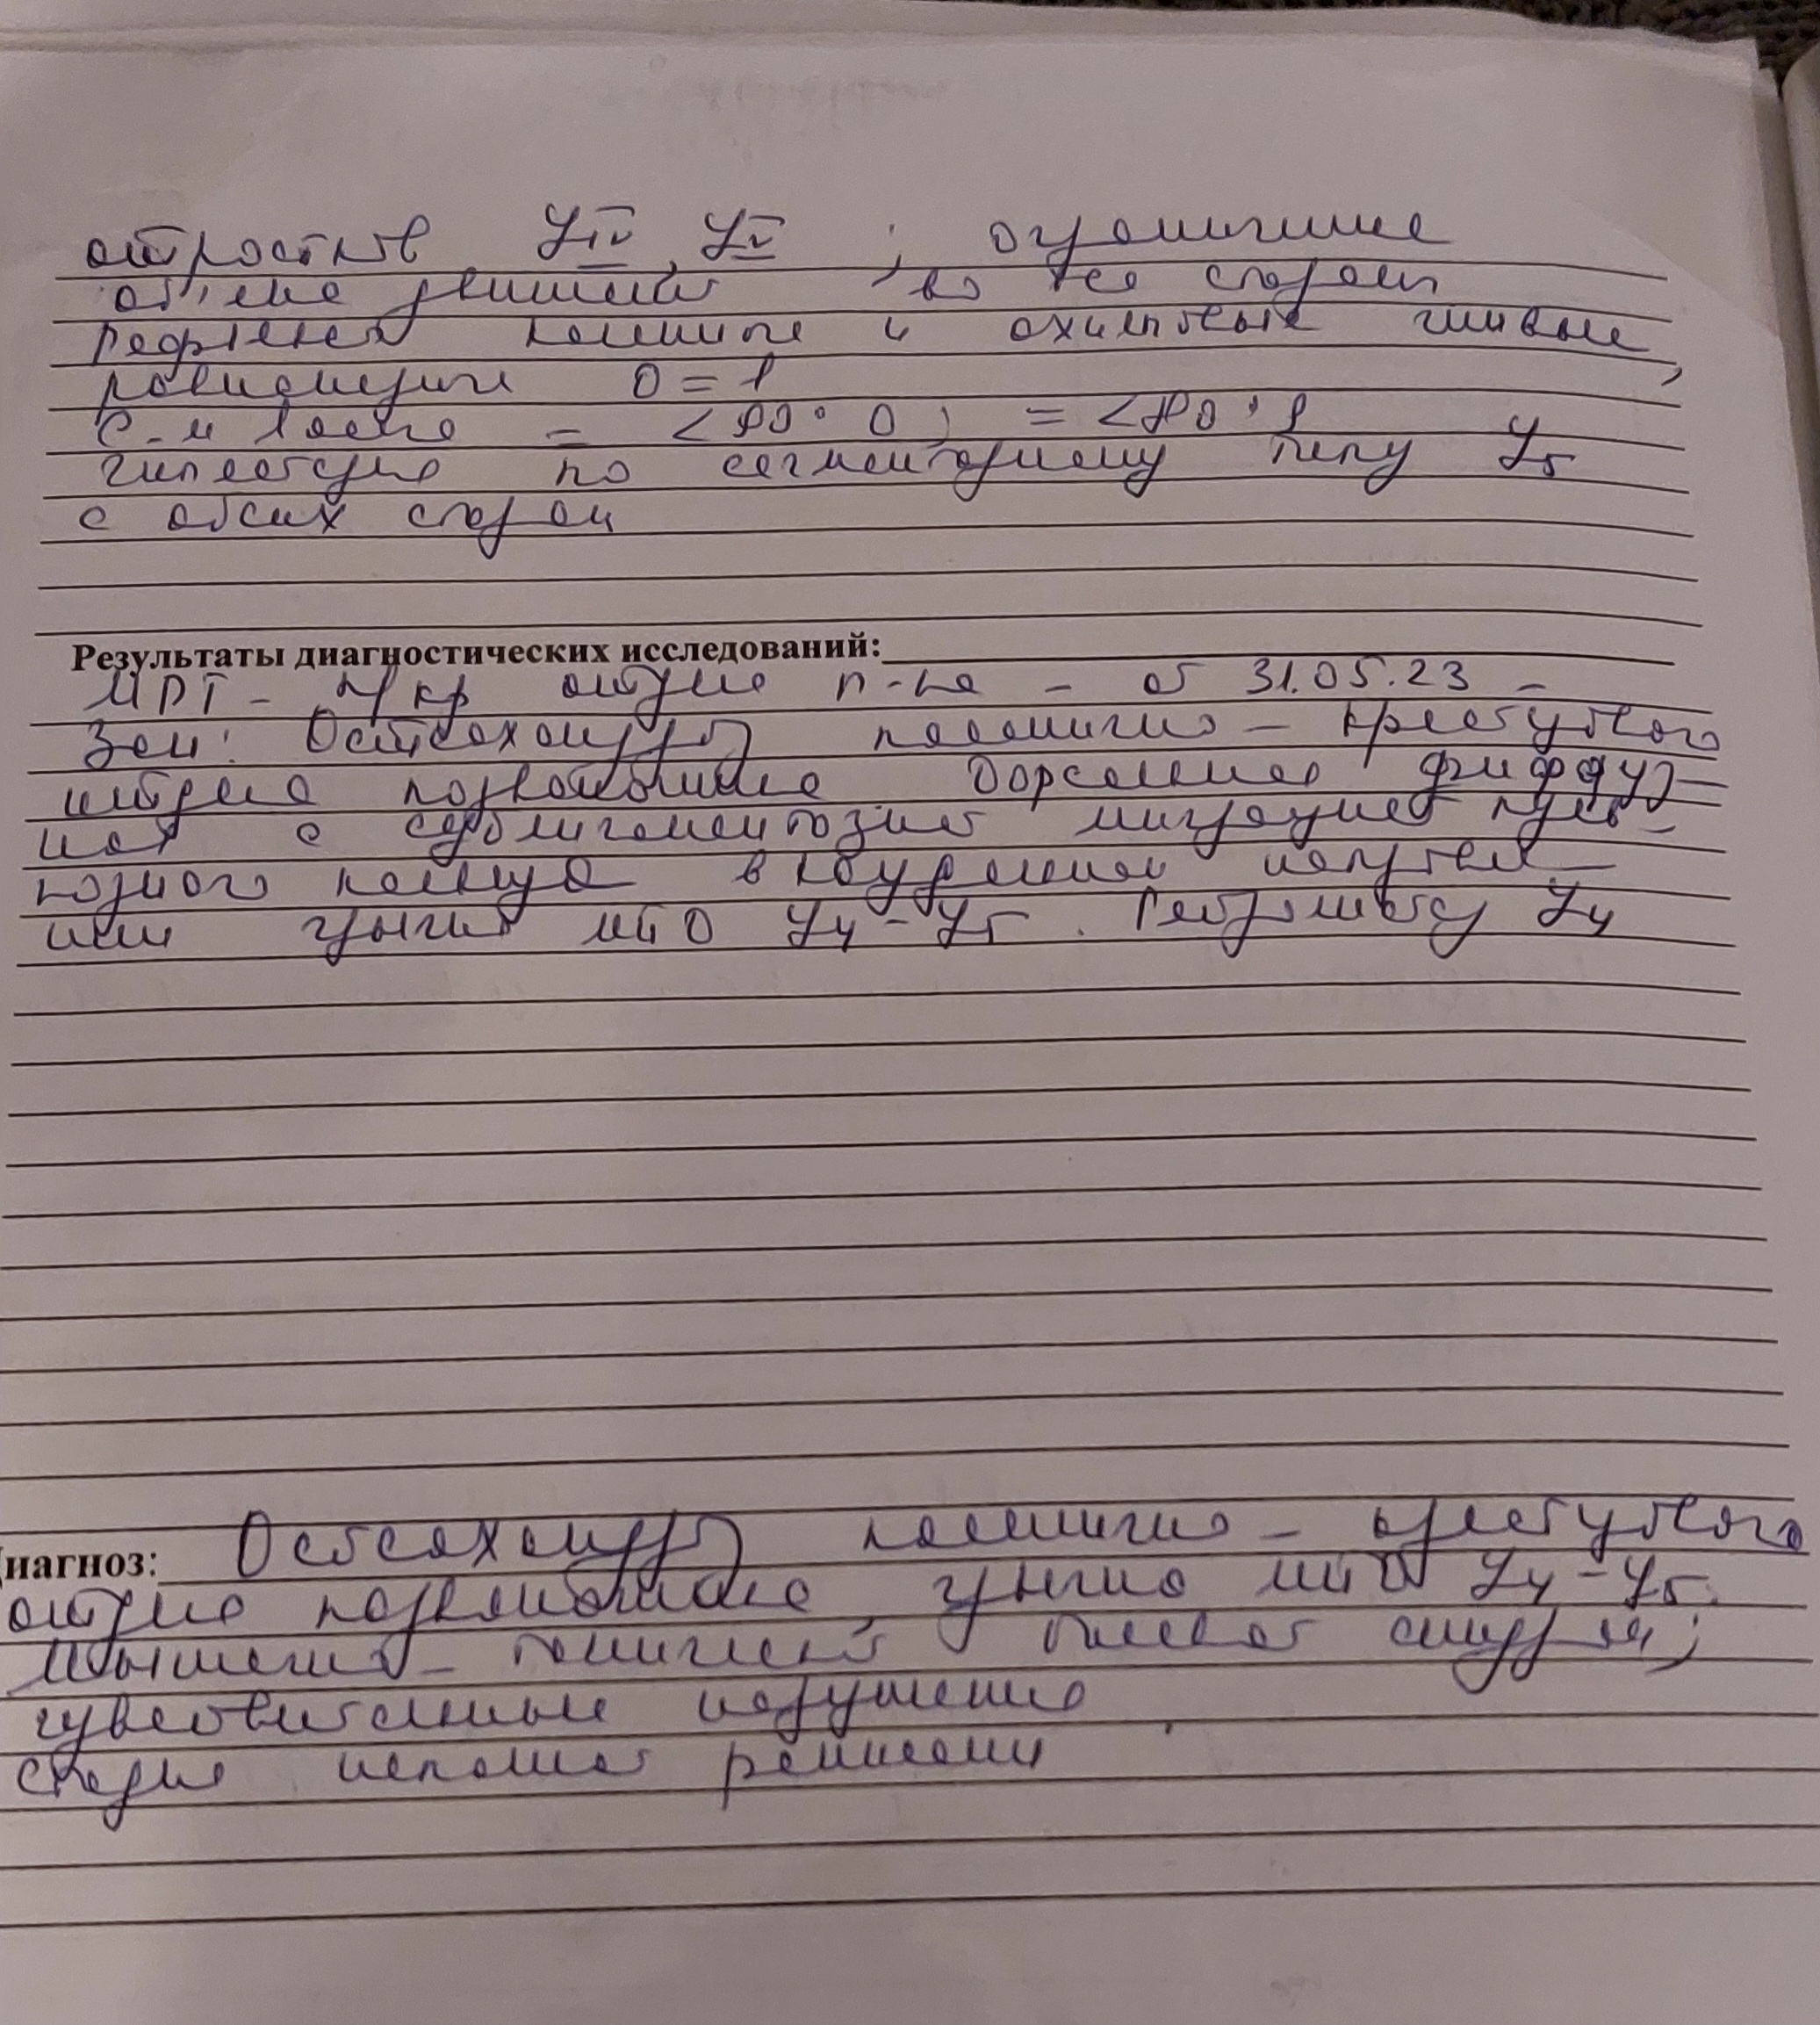 отростков LIV, LV ; ограничение
объема движений во все стороны
рефлексы коленные и ахилловы живые,
равномерные D = S
С-м Ласега = < 90° D ; = < 80° S
гипестезия по сегментарному типу L5
с обеих сторон
Результаты диагностических исследований:
МРТ - п/кр отдела п-ка - от 31.05.23 -
Зак: Остеохондроз пояснично - крестцового
отдела позвоночника Дорсальная диффуз-
ная с сублигаментозной миграцией пуль-
позного кольца в каудальном направле-
нии грыжа МПД L4 - L5. Ретролистез L4
Диагноз: Остеохондроз пояснично - крестцового
отдела позвоночника, грыжа МПД L4 - L5.
Мышечно - тонический болевой синдром;
чувствительные нарушения
стадия неполной ремиссии